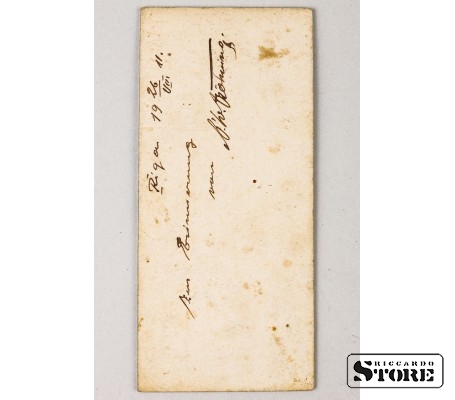 Riga 19 26/VIII 11.
Zur Erinnerung
von
RICCARDO
STORE